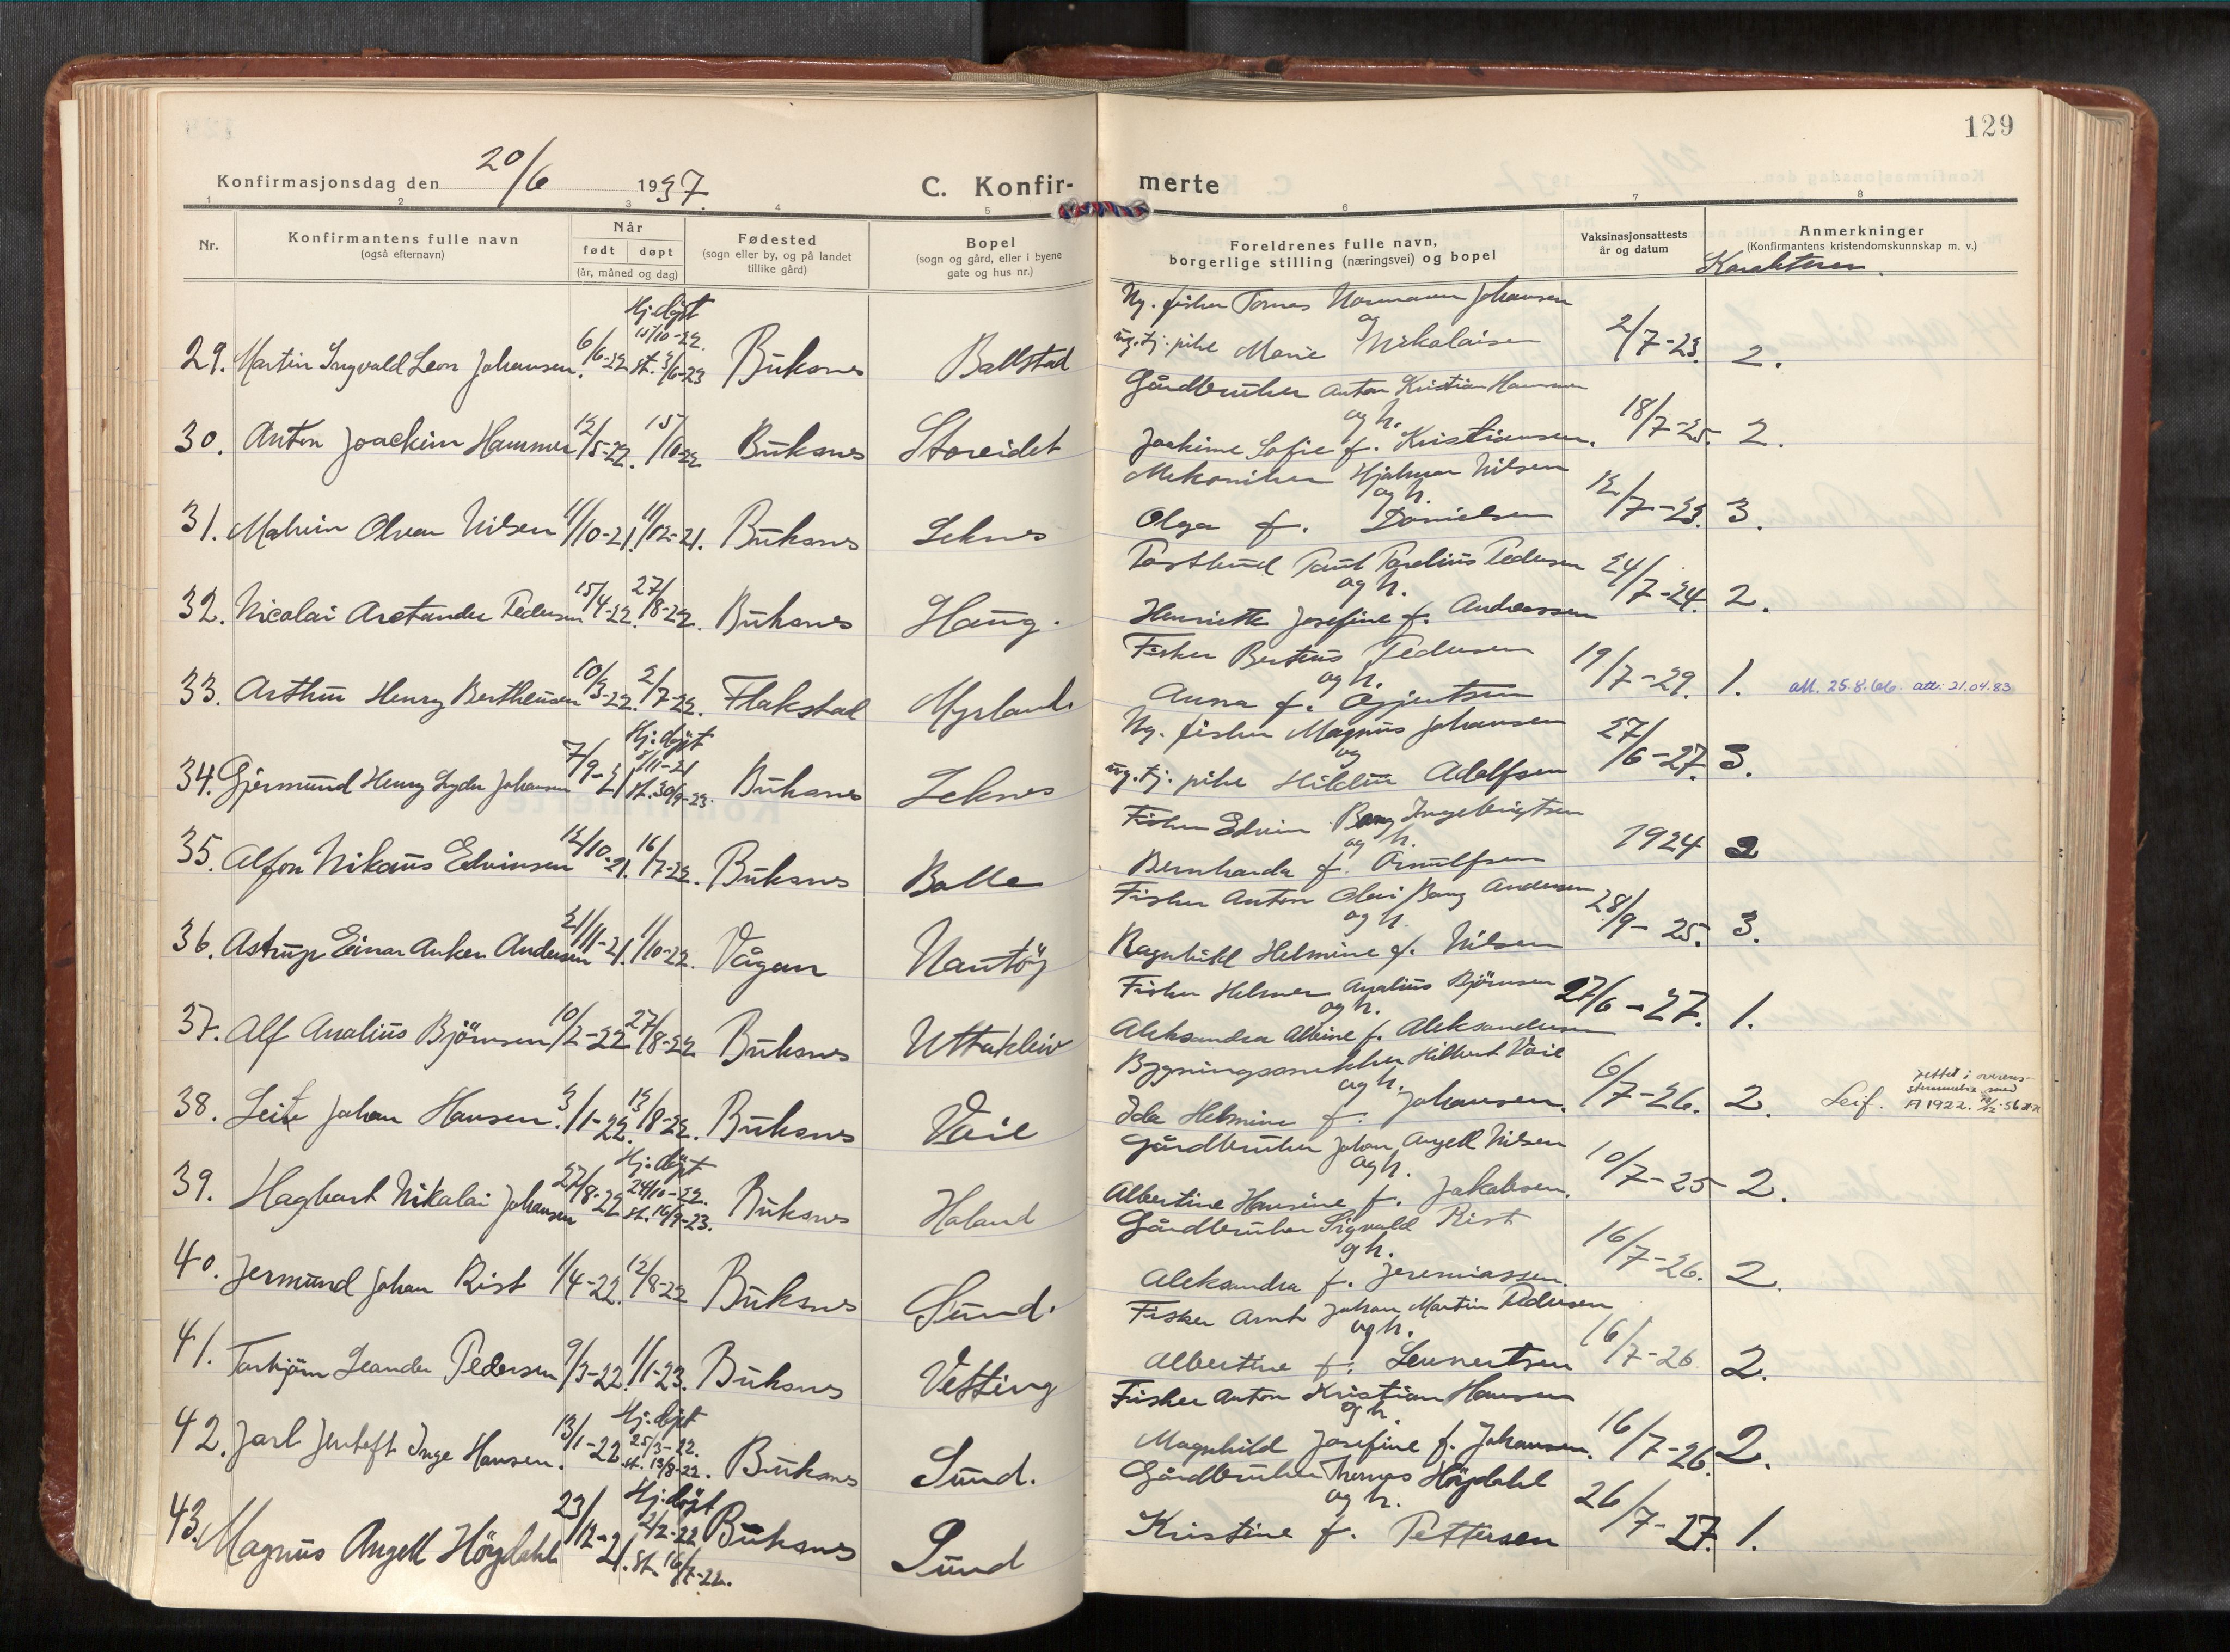 129
Konfirmasjonsdag den 20/6 1937.
C. Konfir-merte
1 2 3 4 5 6 7 8
Nr.
Konfirmantens fulle navn
(også efternavn)
Når
født døpt
(år, måned og dag)
Fødested
(sogn eller by, og på landet
tillike gård)
Bopel
(sogn og gård, eller i byene
gate og hus nr.)
Foreldrenes fulle navn,
borgerlige stilling (næringsvei) og bopel
Vaksinasjonsattests
år og datum
Anmerkninger
(Konfirmantens kristendomskunnskap m. v.)
Karakteren.
Hj. døpt
15/10-22. Ug. fisker Tomas Normann Johansen
og
29. Martin Ingvald Leon Johansen. 6/6-22 st. 3/6-23 Buksnes Ballstad ug. tj. pike Marie Nikolaisen 2/7-23. 2.
Gårdbruker Anton Kristian Hammer
og h.
30. Anton Joackim Hammer 12/5-22. 15/10-22 Buksnes Storeidet Joakime Sofie f. Kristiansen. 18/7-25. 2.
Mekaniker Hjalmar Nilsen
og h.
31. Malvin Olvar Nilsen 11/10-21. 11/12-21. Buksnes Leknes Olga f. Danielsen 12/7-23. 3.
Postbud Paul Parelius Pedersen
og h.
32. Nicolai Arctander Pedersen 15/4-22. 27/8-22. Buksnes Haug. Henriette Josefine f. Andreassen 24/7-24. 2.
Fisker Berteus Pedersen
og h.
33. Arthur Henry Bertheusen 10/3-22. 2/7-22. Flakstad Myrland. Anna f. 19/7-29. 1. att. 25.8.66. att: 21.04.83
Hj. døpt
5/11-21 Ug. fisker Magnus Johansen
og
34. Gjermund Henry Lyder Johansen 7/9-21 st. 30/9-23. Buksnes Leknes ug. tj. pike Hildur Adolfsen 27/6-27. 3.
Fisker Edvin Bang Ingebrigtsen
og h.
35. Alfon Nikaus Edvinsen 12/10-21. 16/7-22. Buksnes Balle Bernharda f. Arnulfsen 1924 2
Fisker Anton Olai Bang Andersen
og h.
36. Astrup Einar Anker Andersen 21/11-21. 1/10-22. Vågan Nautöy Ragnhild Helmine f. Nilsen 28/9-25. 3.
Fisker Helmer Analius Björnsen
og h.
37. Alf Analius Björnsen 10/2-22 27/8-22 Buksnes Uttakleiv Aleksandra Albine f. Aleksandersen 27/6-27. 1.
Bygningssnekker Hilbert Voie
og h.
38. Leif Johan Hansen. 3/1-22. 13/8-22. Buksnes Voie Ida Helmine f. Johansen. 6/7-26. 2. Leif. rettet i overens-
stemmelse med
A 1922.
Hj. døpt
24/10-22. Gårdbruker Johan Angell Nilsen
og h.
39. Hagbart Nikolai Johansen 27/8-22 st. 16/9-23. Buksnes Holand Albertine Hansine f. Jakobsen. 10/7-25 2.
Gårdbruker Sigvald Rist
og h.
40. Jermund Johan Rist 1/4-22. 12/8-22 Buksnes Sund. Aleksandra f. Jeremiassen. 16/7-26. 2.
Fisker Arnt Johan Martin Pedersen
og h.
41. Torbjörn Leander Pedersen 9/3-22. 1/1-23. Buksnes Vetting Albertine f. Lennertsen 16/7-26. 2.
Hj. døpt
25/3-22. Fisker Anton Kristian Hansen
og h.
42. Jarl Jentoft Inge Hansen. 13/1-22 st. 13/8-22. Buksnes Sund. Magnhild Josefine f. Johansen. 16/7-26. 2.
Hj. døpt
2/2-22 Gårdbruker Thomas Höydahl
og h.
43. Magnus Angell Höydahl 23/12-21. st. 16/7-22. Buksnes Sund Kristine f. Pettersen 26/7-27. 1.